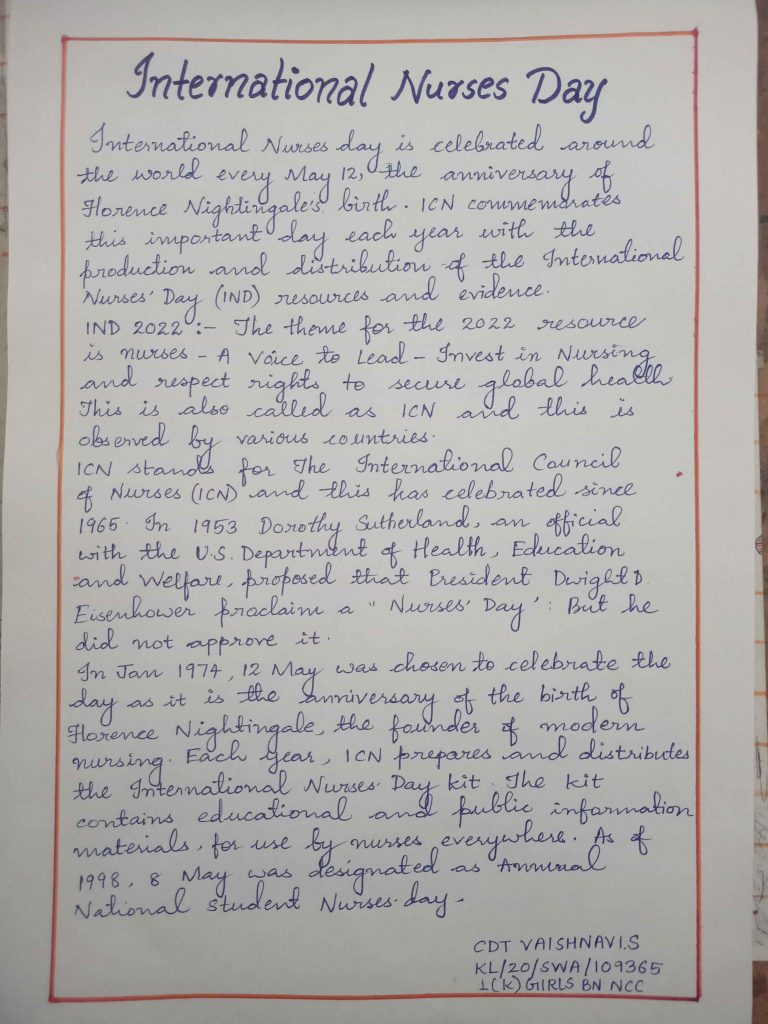 International Nurses Day
International Nurses day is celebrated around
the world every May 12, the anniversary of
Florence Nightingale's birth. ICN commemarates
this important day each year with the
production and distribution of the International
Nurses' Day (IND) resources and evidence.
IND 2022 :- The theme for the 2022 resource
is nurses - A Voice to Lead - Invest in Nursing
and respect rights to secure global health
This is also called as ICN and this is
observed by various countries.
ICN stands for The International Council
of Nurses (ICN) and this has celebrated since
1965. In 1953 Dorothy Sutherland, an official
with the U.S. Department of Health, Education
and Welfare, proposed that President Dwight D.
Eisenhower proclaim a "Nurses' Day'. But he
did not approve it.
In Jan 1974, 12 May was chosen to celebrate the
day as it is the anniversary of the birth of
Florence Nightingale, the founder of modern
nursing. Each year, ICN prepares and distributes
the International Nurses' Day kit. The kit
contains educational and public information
materials, for use by nurses everywhere. As of
1998, 8 May was designated as Annual
National student Nurses day.
CDT VAISHNAVI.S
KL/20/SWA/109365
1(K) GIRLS BN NCC